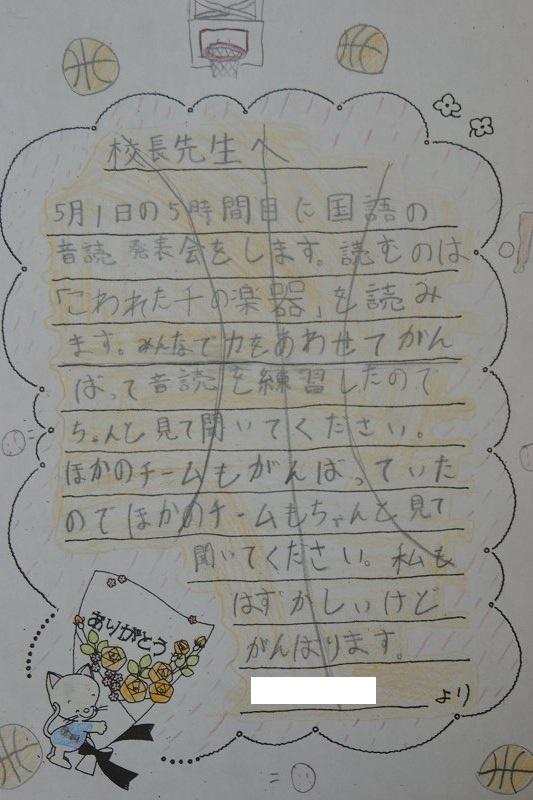 校長先生へ
5月1日の5時間目に国語の
音読発表会をします。読むのは
「こわれた千の楽器」を読み
ます。みんなで力をあわせてがん
ばって音読を練習したので
ちゃんと見て聞いてください。
ほかのチームもがんばっていた
のでほかのチームもちゃんと見て
聞いてください。私も
はずかしいけど
がんばります。
より
ありがとう